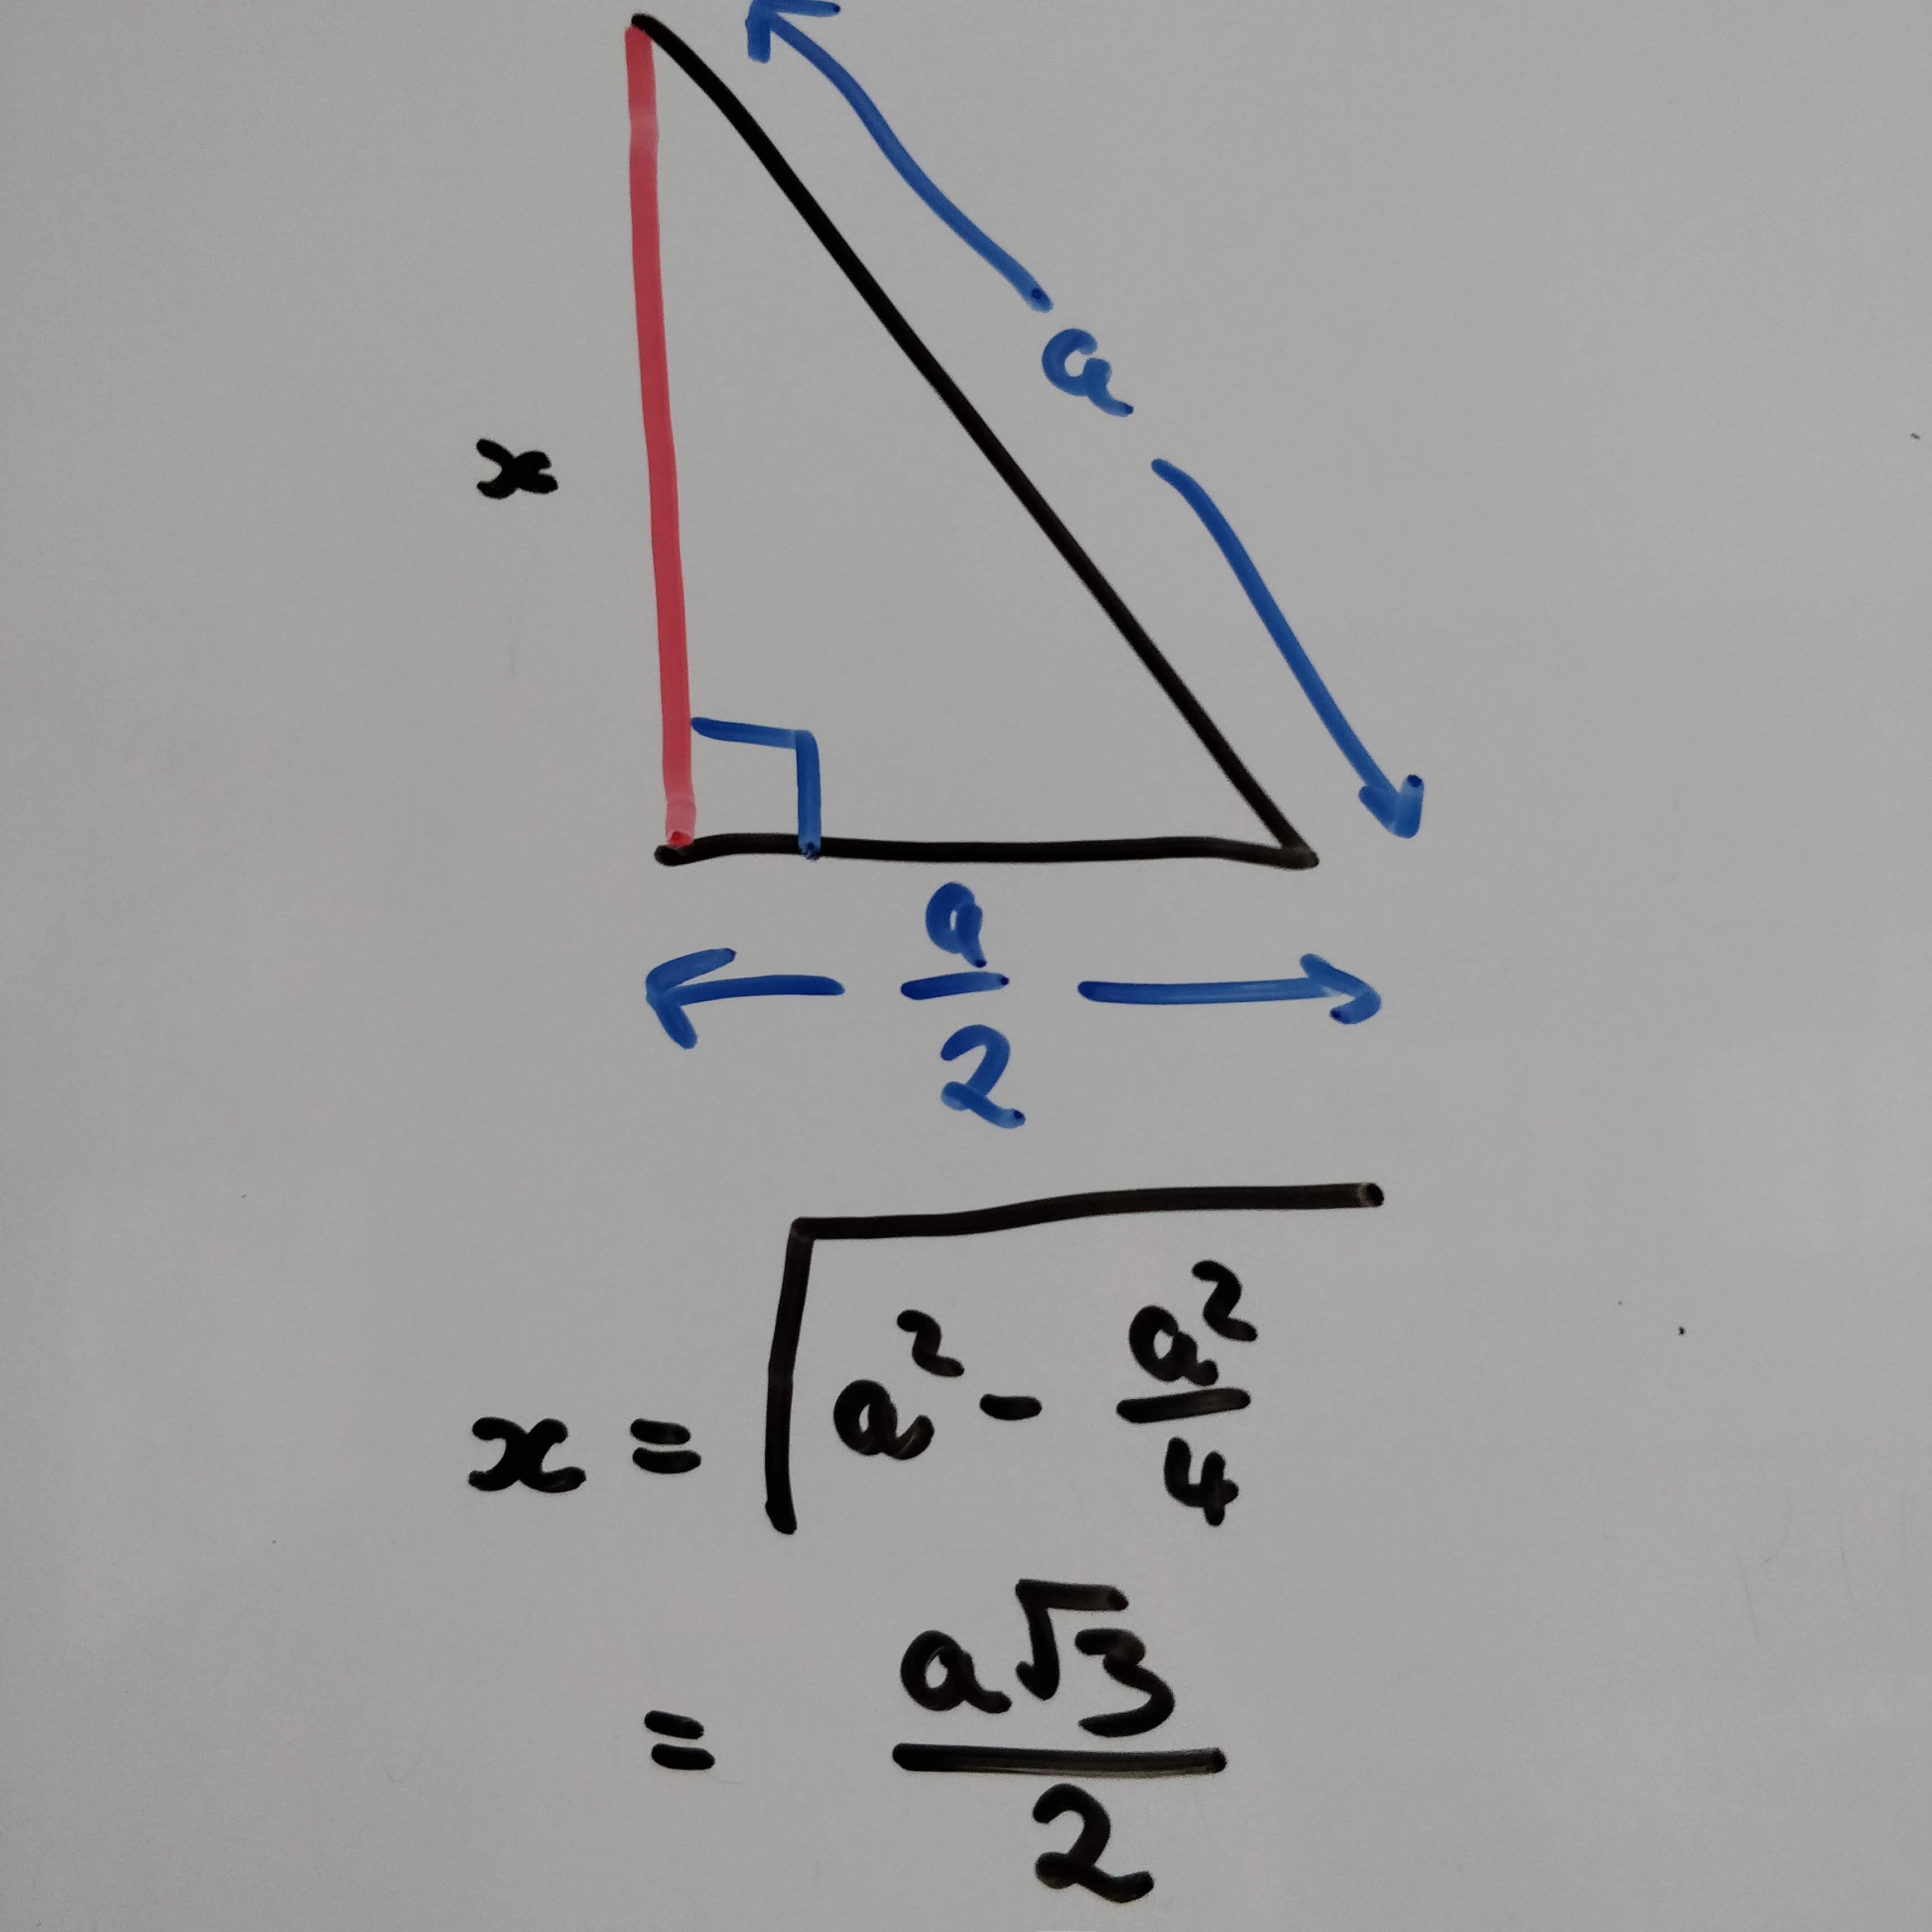 a
x
a/2
x = √(a² - a²/4)
= a√3/2